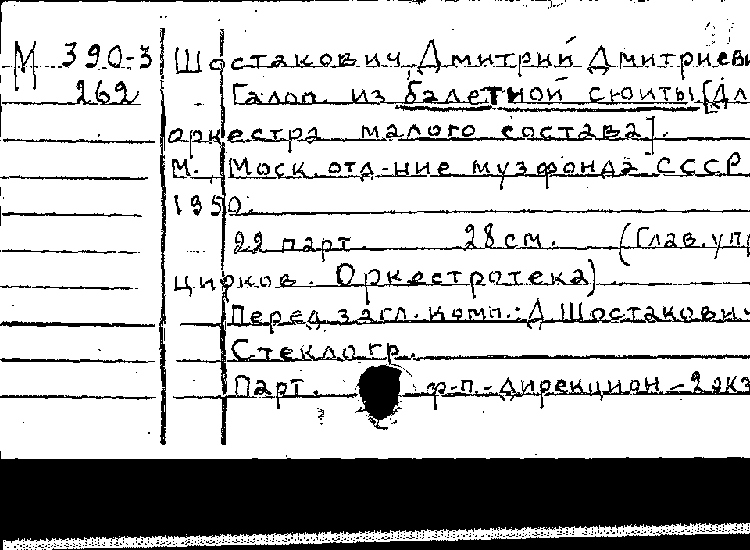 М 390-3 Шостакович Дмитрий Дмитриеви
262 Галоп из балетной сюиты [Дл
оркестра малого состава].
М., Моск. отд-ние музфонда СССР
1950.
22 парт. 28 см. (Глав. упр
цирков. Оркестротека)
Перед загл. комп.: Д Шостакович
Стеклогр.
Парт. ф-п.-дирекцион – 2 экз